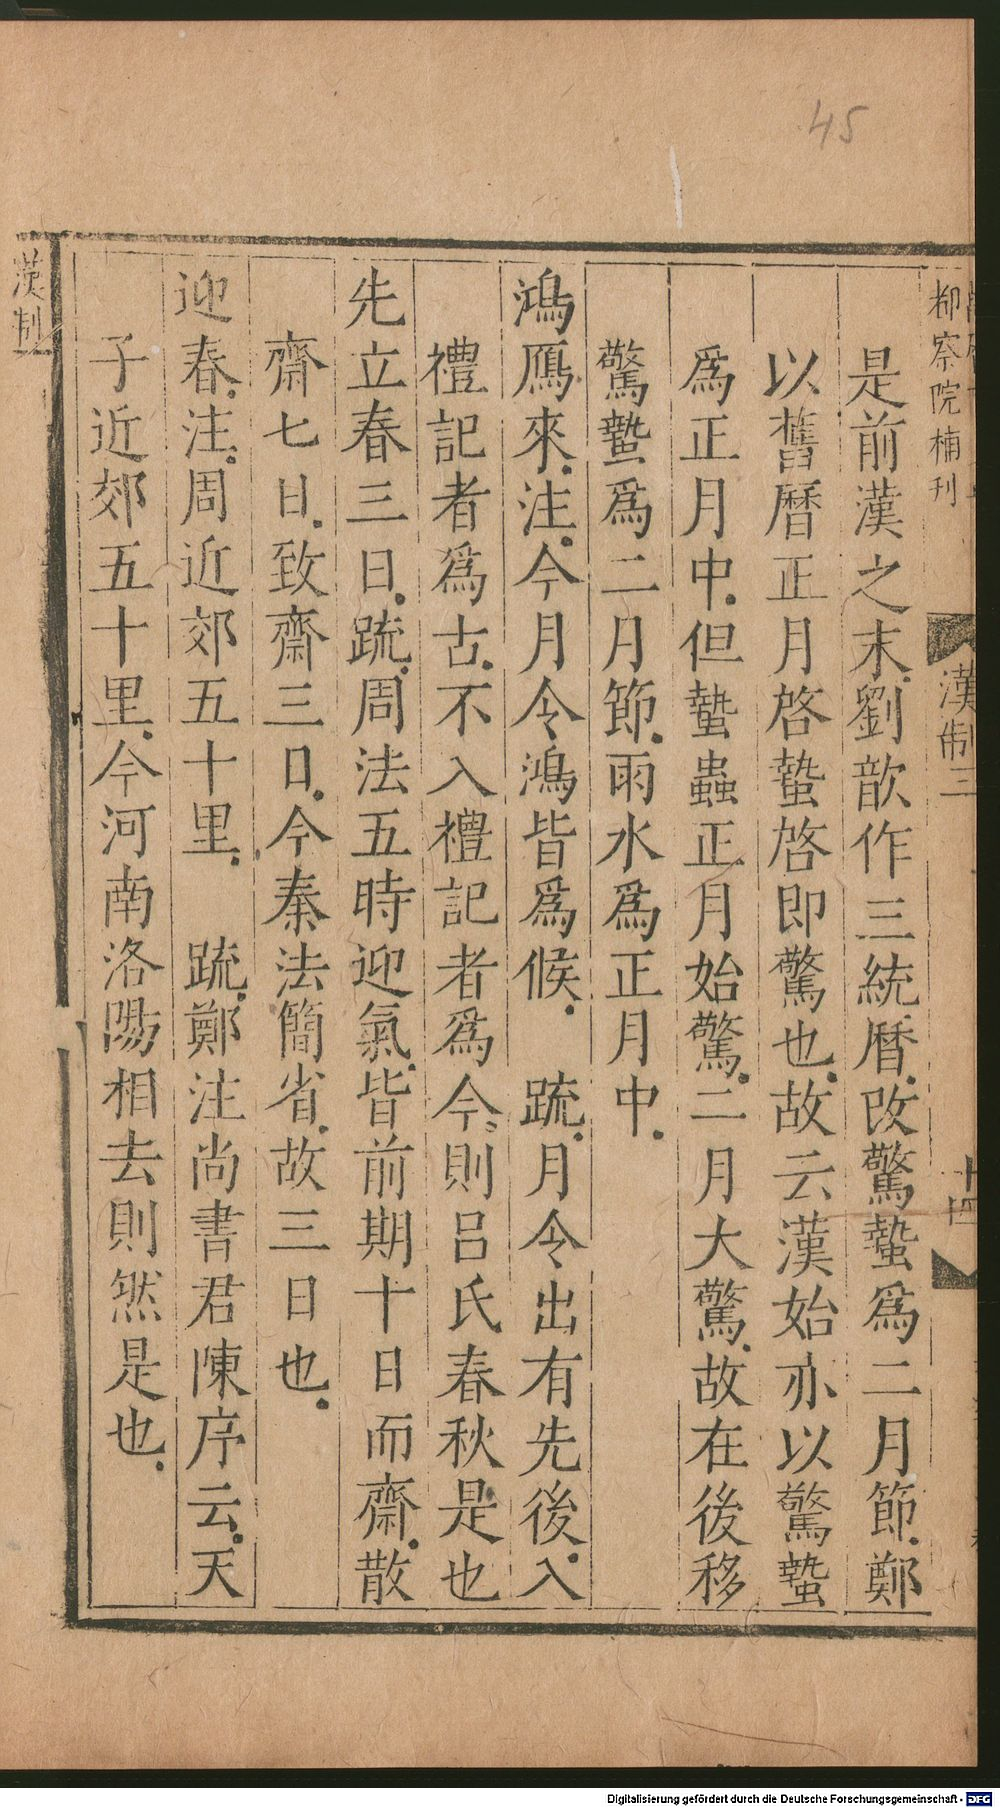 45
柳察院楠刊
漢制三
十四
是前漢之末劉歆作三統曆改驚蟄爲二月節鄭
以舊曆正月啓蟄啓即驚也故云漢始亦以驚蟄
爲正月中但蟄蟲正月始驚二月大驚故在後移
驚蟄爲二月節雨水爲正月中
鴻鴈來注今月令鴻皆爲候 䟽月令出有先後入
禮記者爲古不入禮記者爲今則呂氏春秋是也
先立春三日䟽周法五時迎氣皆前期十日而齋散
齋七日致齋三日今秦法簡省故三日也
迎春注周近郊五十里 䟽鄭注尚書君陳序云天
子近郊五十里今河南洛陽相去則然是也
漢制
Digitalisierung gefördert durch die Deutsche Forschungsgemeinschaft - DFG